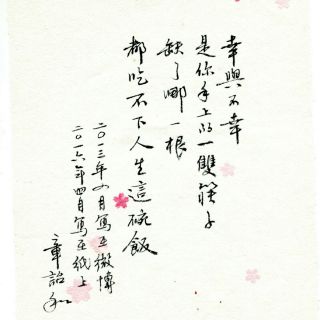 幸與不幸
是你手上的一雙筷子
缺了哪一根
都吃不下人生這碗飯
二〇一三年四月寫在微博
二〇一六年四月寫在紙上
章詒和